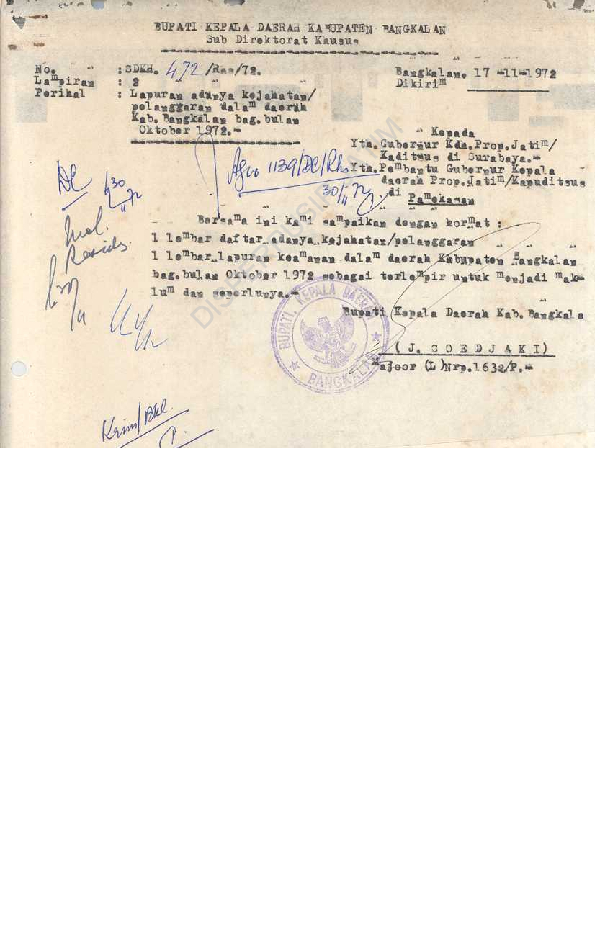 BUPATI KEPALA DAERAH KABUPATEN BANGKALAN
Sub Direktorat Khusus
No. " :SDKH. 472/Ras/72.
Lampiran : 2 " "
Perihal : Lapuran adanya kejahatan/
pelanggaran dalam daerih
Kab.Bangkalan bag.bulan
Oktober 1972.-
Bangkalan, 17 -11-1972
Dikirim
Kepada
Yth.Gubernur Kda.Prop.Jatim/
Kaditsus di Surabaya.-
Yth.Pembantu Gubernur Kepala
daerah Prop.Jatim/Kapuditsus
di
Pamekasan
Agno 1139/DC/Rhs
30/11 72
Bersama ini kami sampaikan dengan hormat :
1 lembar daftar adanya kejahatan/pelanggaran " " "
1 lembar lapuran keamanan dalam daerah Kabupaten Bangkalan
bag.bulan Oktober 1972 sebagai terlampir untuk menjadi mak-
lum dan seperlunya.-
Bupati/Kepala Daerah Kab. Bangkala
BUPATI KEPALA DAERAH
BANGKALAN
( J. SOEDJAKI)
Majoor (L)Nrp.1632/P.-